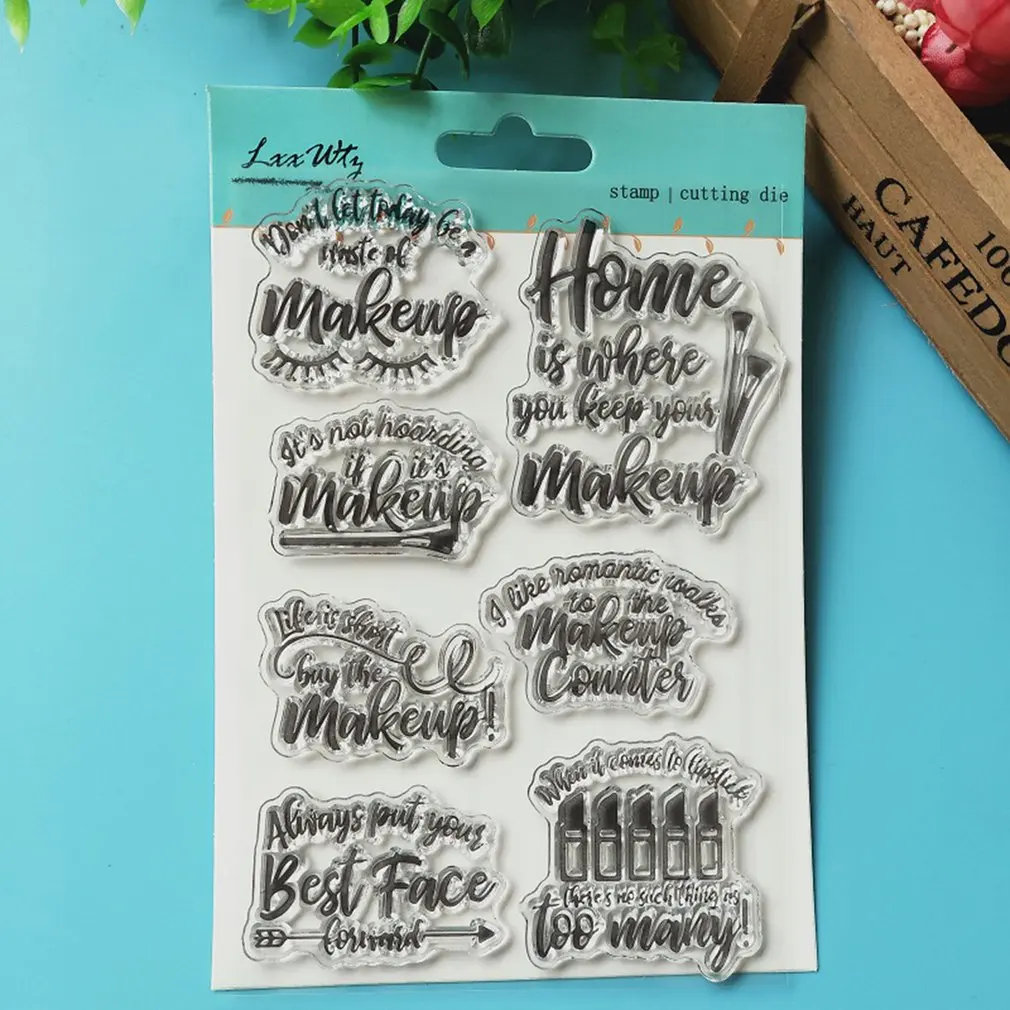 Lxx Wty
stamp | cutting die
Don't let today be a
waste of
Makeup
Home
is where
you keep your
Makeup
It's not hoarding
if it's
Makeup
I like romantic walks
to the
Makeup
Counter
Life is short
buy the
Makeup!
Always put your
Best Face
forward
When it comes to lipstick
there's no such thing as
too many!
100
CAFEDO
HAUT